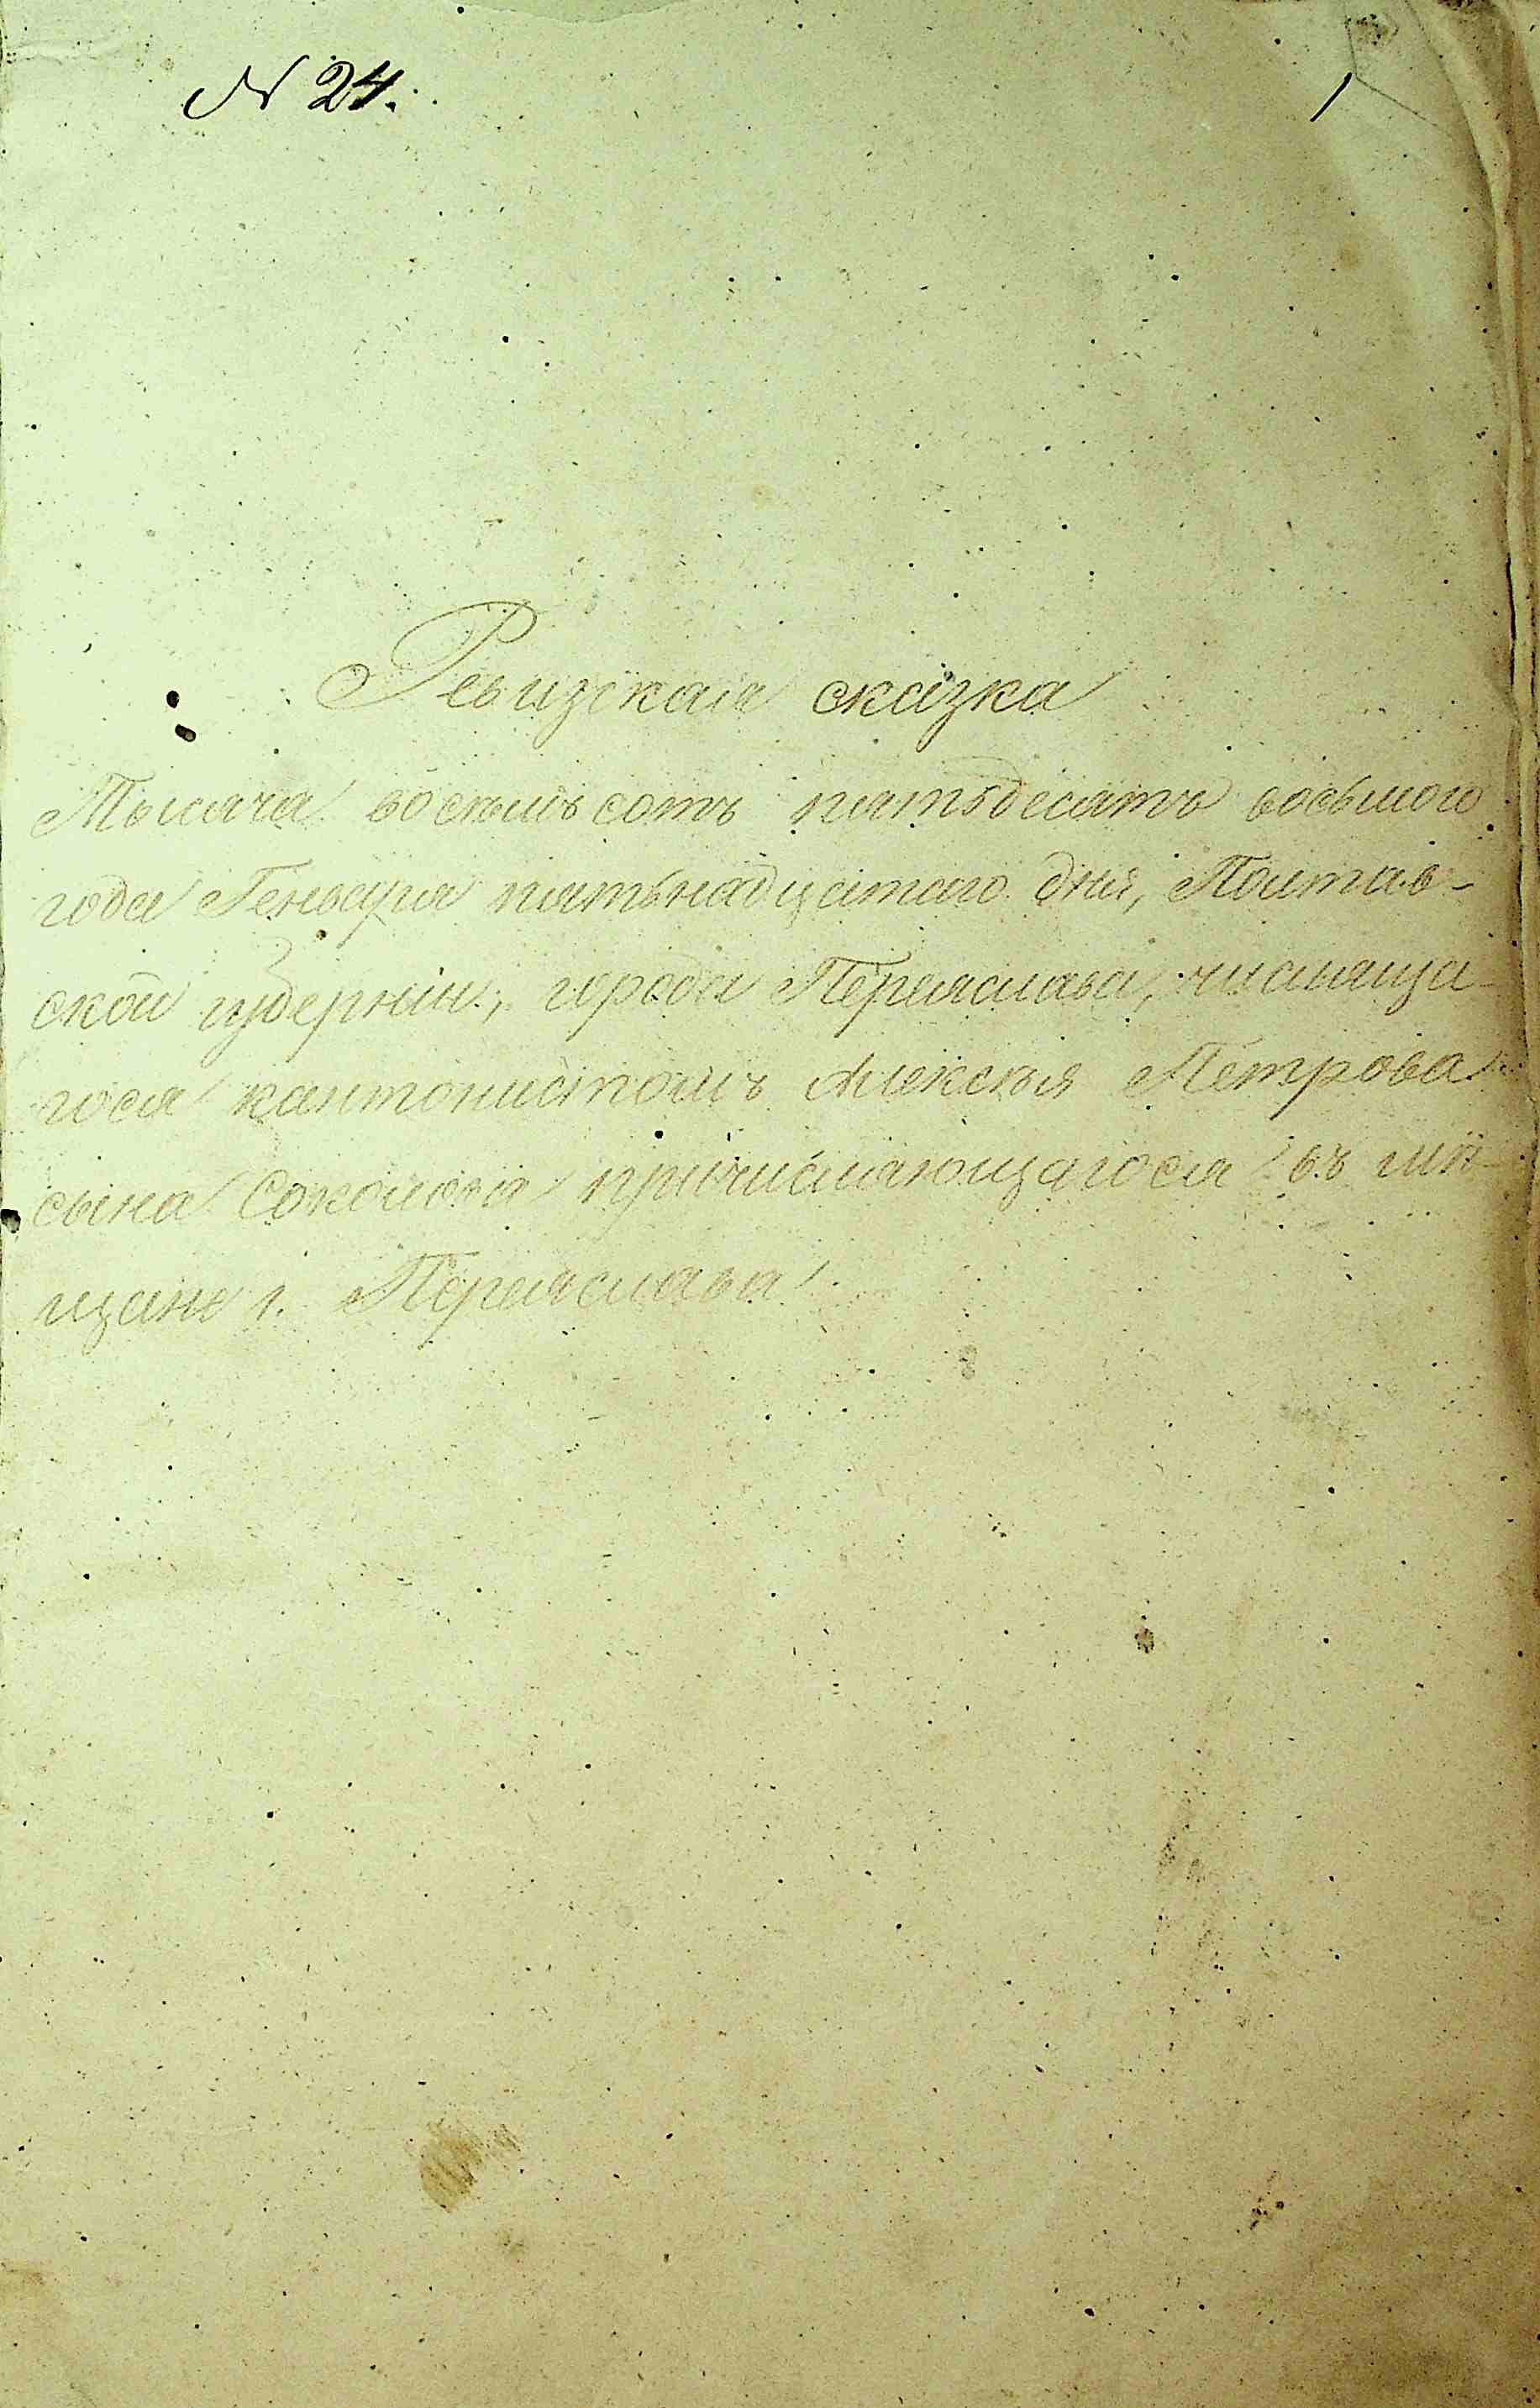 № 24.
1
Ревизская сказка
Тысяча восемьсотъ пятьдесятъ восьмого
года Генваря пятьнадцатого дня, Полтав-
ской губерніи, города Переяслава, числяща-
гося кантонистомъ Алексѣя Петрова
сына причисляющагося въ мѣ-
щане г. Переяслава